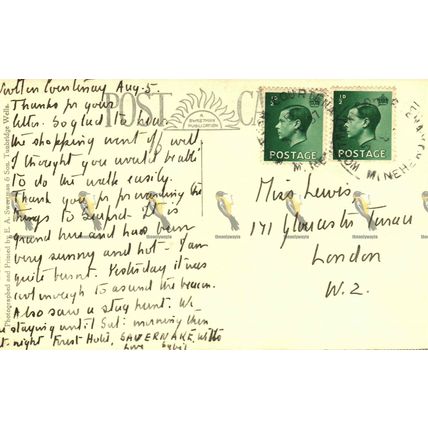 Aug. 5.
Thanks for your
letter. So glad to hear
the shopping went off well
I thought you would be able
to do the walk easily.
Thank you for forwarding the
things to Sybil. It is
grand here and has been
very sunny and hot - I am
quite burnt. Yesterday it was
enough to ascend the beacon.
Also saw a stag hunt. We
staying until Sat: morning then
night Forest Hotel, SAVERNAKE, Wilts
Love Sybil
POST CA
A SWEETMAN PUBLICATION
Photographed and Printed by E. A. Sweetman & Son, Tunbridge Wells.
½D
POSTAGE
½D
POSTAGE
MINEHEAD
Miss Lewis
141 Gloucester Terrace
London
W.2.